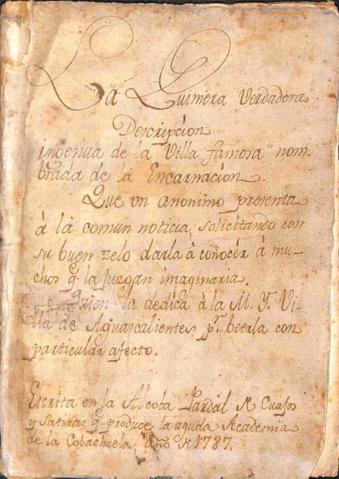 La Quimera Verdadera.
Descripcion
ingenua de la Villa famosa nom-
brada de la Encarnacion.
Que vn anonimo presenta
â la comun noticia, solicitando con
su buen zelo darla â conocèr â mu-
chos q. la juzgan imaginaria.
Quien la dedica â la M. Y. Vi-
lla de Aguascalientes pr. beerla con
particular afecto.
Escrita en la Alcoba Pardal
y Satiras q. produce la aguda Academia
de la Cobachuela, Año 1787.